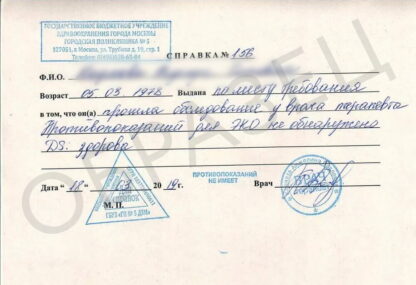 ГОСУДАРСТВЕННОЕ БЮДЖЕТНОЕ УЧРЕЖДЕНИЕ
ЗДРАВООХРАНЕНИЯ ГОРОДА МОСКВЫ
ГОРОДСКАЯ ПОЛИКЛИНИКА № 5
127051, г. Москва, ул. Трубная д. 19, стр. 1
СПРАВКА № 15В
Ф.И.О.
Возраст 05 03 1978 Выдана по месту требования
в том, что он(а) прошла обследование у врача терапевта
Противопоказаний для ЭКО не обнаружено
DS: здорова
ПРОТИВОПОКАЗАНИЙ
НЕ ИМЕЕТ
Дата "18" 03 2019г. Врач
М.П.
ВРАЧ
ГБУЗ «ГП № 5 ДЗМ»
ОБРАЗЕЦ